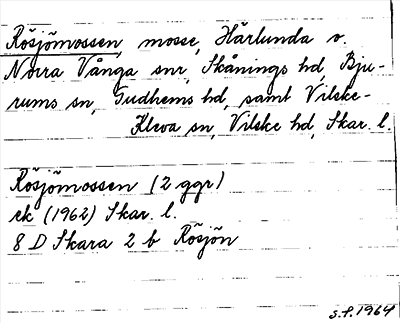 Rösjömossen, mosse, Härlunda o.
Norra Vånga snr, Skånings hd, Bju-
rums sn, Gudhems hd, samt Vilske-
Kleva sn, Vilske hd, Skar. l.
Rösjömossen (2 ggr)
ek (1962) Skar. l.
8 D Skara 2 b Rösjön
S.F. 1964